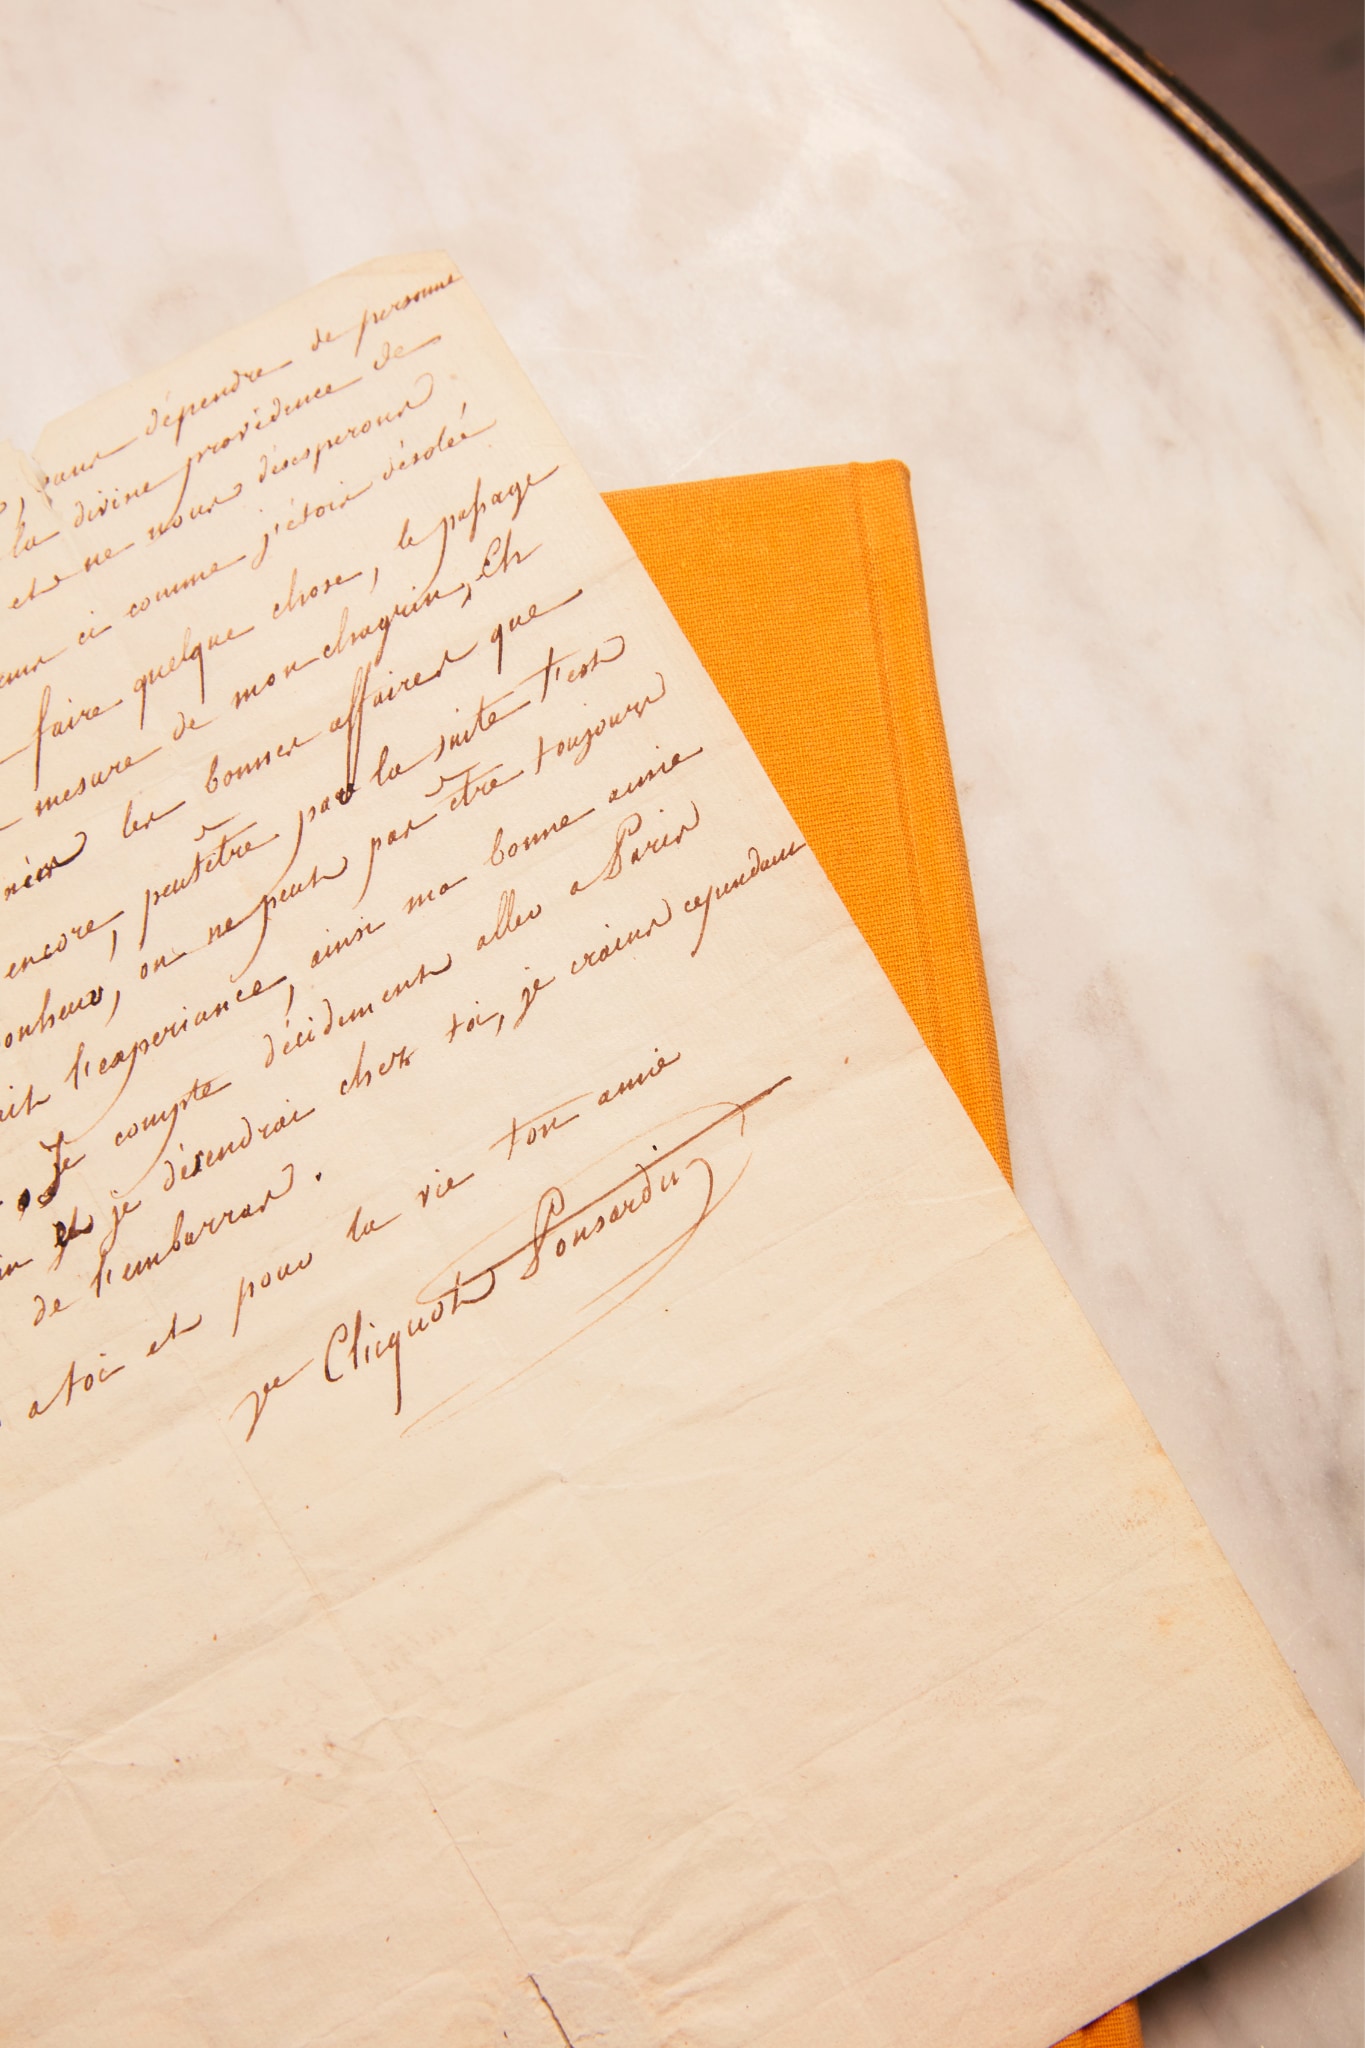 sans dépendre de personne
la divine providence de
et ne nous désésperons
ci comme j'étois désolée
faire quelque chose, le passage
mesure de mon chagrin, Ch
les bonnes affaires que
encore, peutêtre par la suite t'est
on ne peut pas être toujours
l'experiance, ainsi ma bonne amie
Je compte décidement aller a Paris
et je désendrai chez toi, je crains cependant
de l'embarras.
a toi et pour la vie ton amie
ve Clicquot Ponsardin